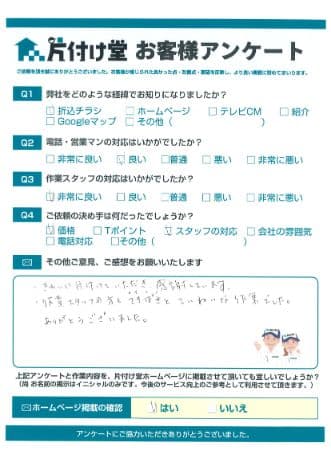 片付け堂 お客様アンケート
ご依頼を頂き誠にありがとうございました。お客様が感じられた良かった点・改善点・要望をお聞かせ、より良い機関に努めてまいります。
Q1 弊社をどのような経緯でお知りになりましたか?
折込チラシ ホームページ テレビCM 紹介
Googleマップ その他( )
Q2 電話・営業マンの対応はいかがでしたか?
非常に良い 良い 普通 悪い 非常に悪い
Q3 作業スタッフの対応はいかがでしたか?
非常に良い 良い 普通 悪い 非常に悪い
Q4 ご依頼の決め手は何だったでしょうか?
価格 Tポイント スタッフの対応 会社の雰囲気
電話対応 その他( )
その他ご意見、ご感想をお願いいたします
・きれいに片付けていただき 感謝しています。
・作業スタッフの方も てきぱきと ていねいな作業でした。
ありがとうございました。
上記アンケートと作業内容を、片付け堂ホームページに掲載させて頂いても宜しいでしょうか?
(尚 お名前の掲示はイニシャルのみです。今後のサービス向上のご参考として利用させて頂きます。)
ホームページ掲載の確認 はい いいえ
アンケートにご協力いただきありがとうございました。